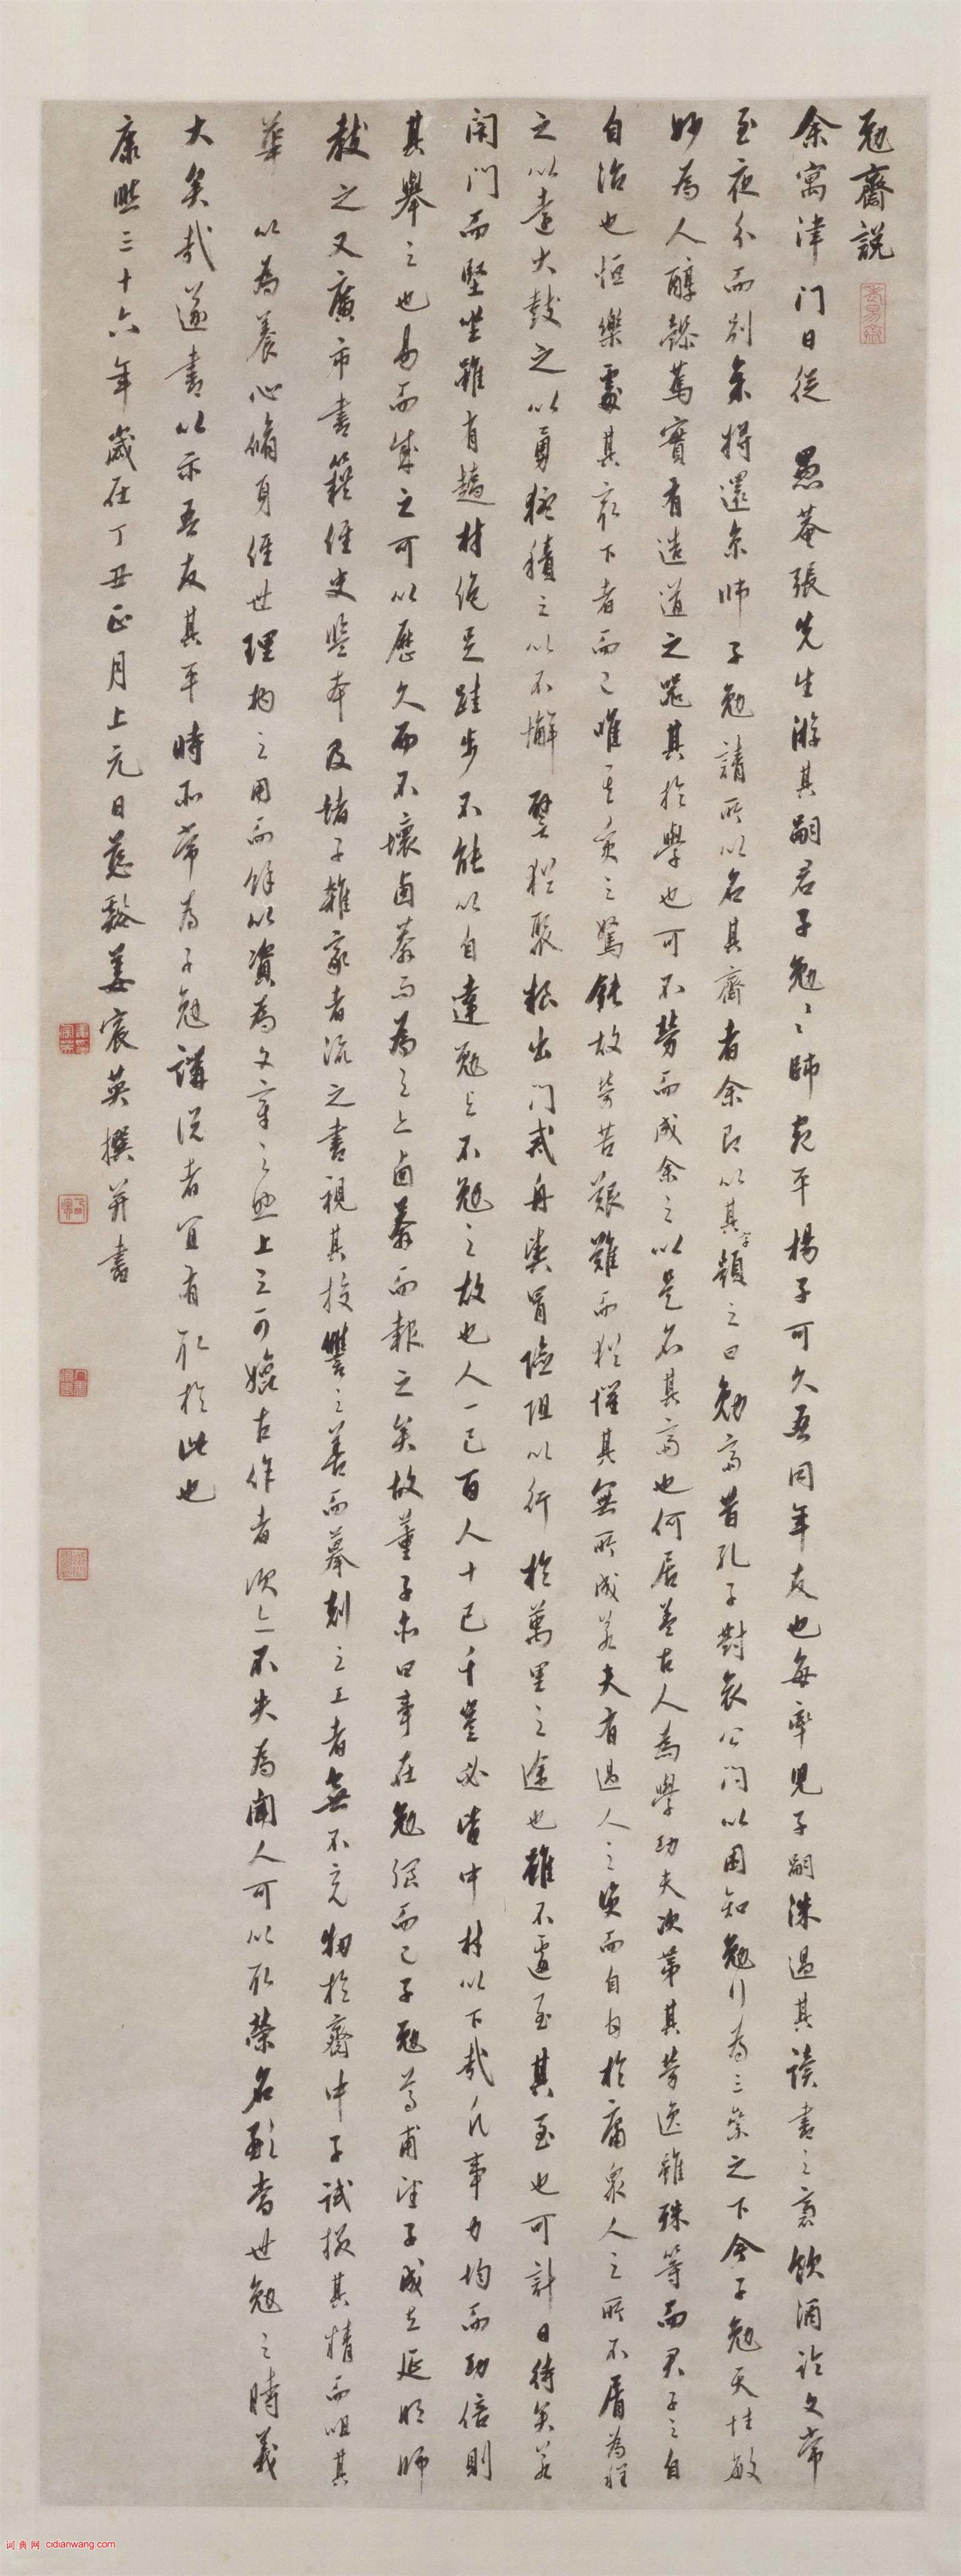 勉齋說
余寓津门日從 愚菴張先生游其嗣君子勉之師宛平楊子可久吾同年友也每率兒子嗣洙過其讀書之齋飲酒論文常
至夜分而別余將還京師子勉請所以名其齋者余即以其字顏之曰勉齋昔孔子對哀公问以困知勉行為三策之下今子勉天性敏
妙為人醇謹篤實有造道之器其於學也可不勞而成余之以是名其齋也何居蓋古人為學功夫次第其勞逸雖殊等而君子之自
自治也恒樂處其最下者而之唯其質之駑鈍故勞苦艱難而猶懼其無所成若夫有過人之質而自同於庸衆人之所不屑為程
之以遠大鼓之以勇猛積之以不懈 譬猶聚糧出门戒舟輿冒險阻以行於萬里之途也雖不遽至其至也可計日待矣若
閉门而堅坐雖有趫材絕足跬步不能以自達勉与不勉之故也人一己百人十己千豈必皆中材以下哉凡事力均而功倍則
其舉之也易而成之可以歷久而不壞鹵莽而為之亦鹵莽而報之矣故董子亦曰事在勉强而已子勉尊甫望子成立延明師
教之又廣市書籍經史監本及諸子雜家者流之書視其校讐之善而摹刻之工者無不充牣於齋中子試掇其精而咀其
華 以為養心脩身經世理物之用而餘以資為文章之典上之可媲古作者次亦不失為聞人可以取榮名顯當世勉之時義
大矣哉遂書以示吾友其平時所常為子勉講說者宜有取於此也
康熙三十六年歲在丁丑正月上元日慈谿姜宸英撰并書
词典网 cidianwang.com